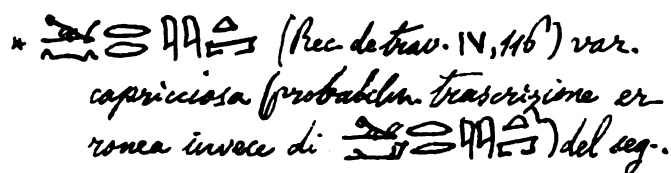 * (Rec. de trav. IV, 116) var.
capricciosa (probabilm. trascrizione er-
ronea invece di ) del seg..